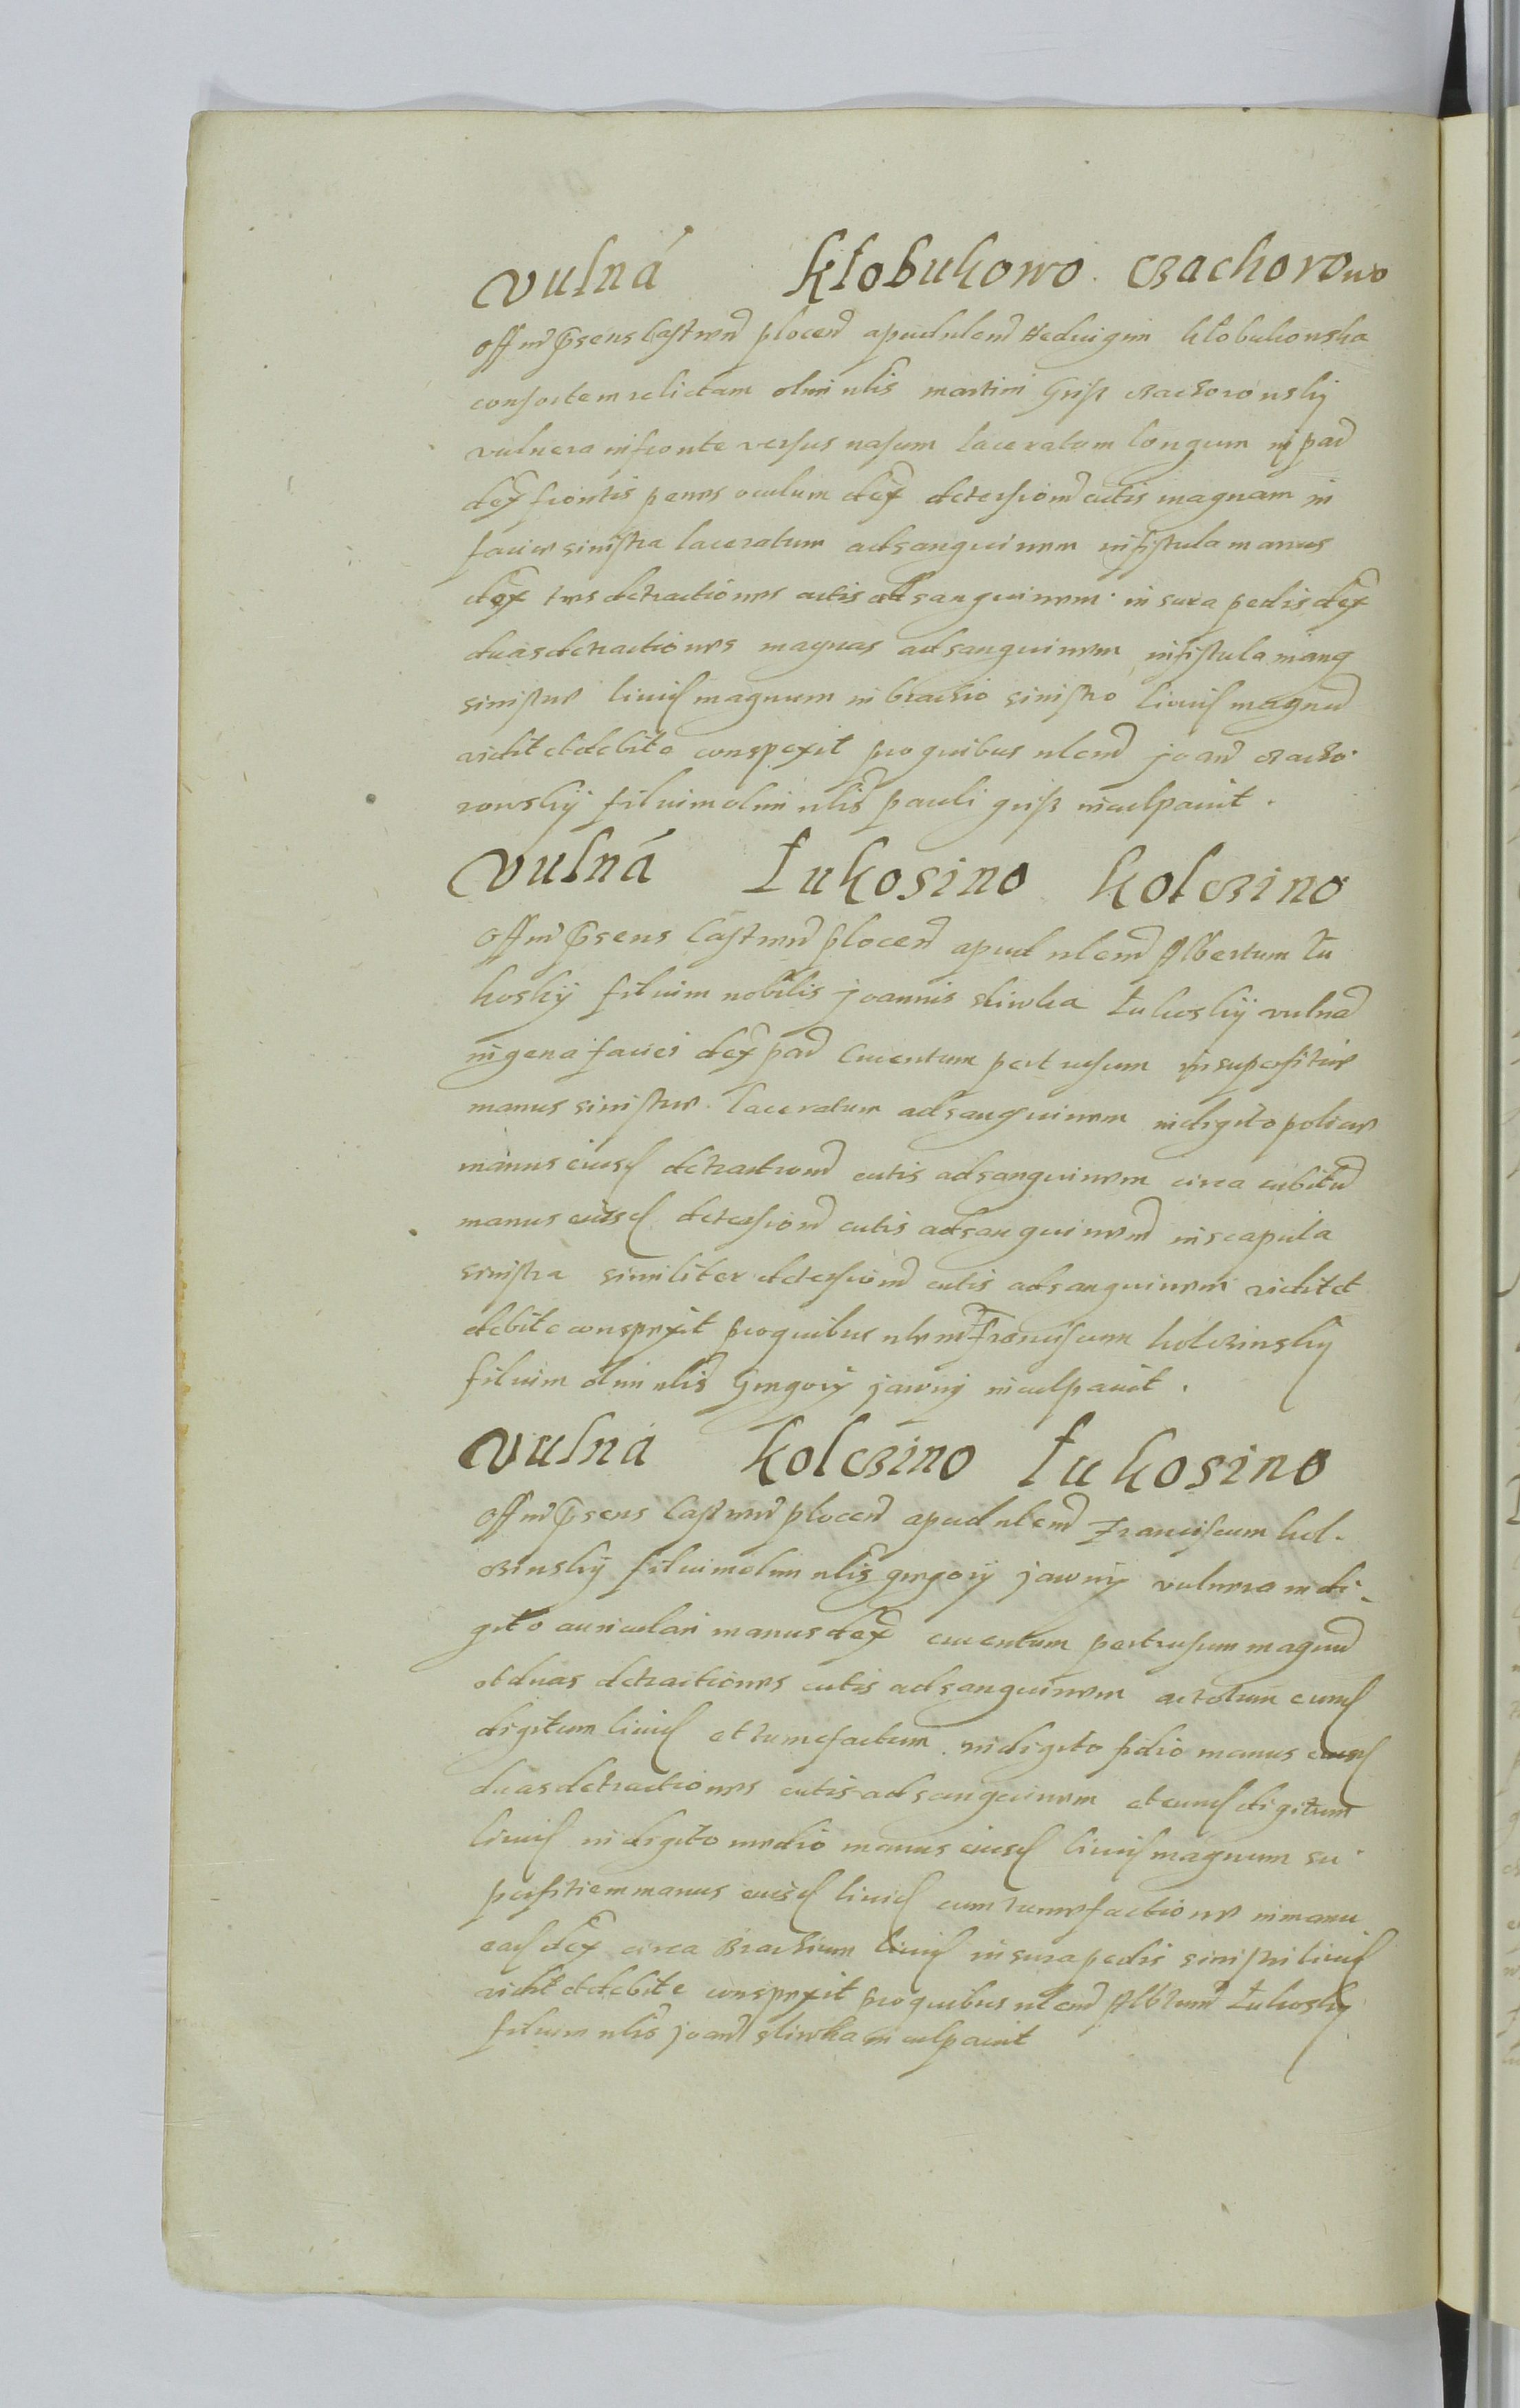 vulná kłobukowo czachorowo
Offm psens Castren plocen apud nlem Hedvigim kłobukowska
consortem relictam olim nlis martini Grisz czachorowsky
vulnera in fronte versus nasum laceratum longum in par
dex frontis penes oculum dex detersionem cutis magnam in
facie sinistra laceratum ad sanguinem in fistula manus
dex tres detractiones cutis ad sanguinem in sura pedis dex
duas detractiones magnas ad sanguinem in fistula manq
sinistre livid magnum in brachio sinistro livid magnu
vidit et debite conspexit pro quibus nlem joan czacho
rowskij filium olim nlis pauli grisz inculpavit .
vulná łukosino kolczino
Offm psens Castren plocen apud nlem Albertum łu
koskij filium nobilis joannis sliwka łukoskij vulne
in gena faciei dex par cruentum pertusum in superfitie
manus sinistre laceratum ad sanguinem in digito police
manus eiusd detractionem cutis ad sanguinem circa cubitu
manus eiusd detersionem cutis ad sanguinem in scapula
sinistra similiter detersionem cutis ad sanguinem vidit et
debite conspexit pro quibus nlem Franciscum kolczinsky
filium olim nlis Gregorij jawny inculpavit .
vulná kolczino łukosino
Offm psens Castren plocen apud nlem Franciscum kol-
czinskij filium olim nlis gregorij jawny vulnera in di-
gito auriculari manus dex cruentum pertusum magnu
et duas detractiones cutis ad sanguinem ac totum eund
digitum livid et tumefactum in digito manus eiusd
duas detractiones cutis ad sanguinem et eund digitum
livid in digito medio manus eiusd livid magnum su
perfitiem manus eiusd livid cum tumefactione in manu
ead dex circa Brachium livid in sura pedis sinistri livid
vidit et debite conspexit pro quibus nlem Albrtum łukosky
filium nlis joan sliwka inculpavit